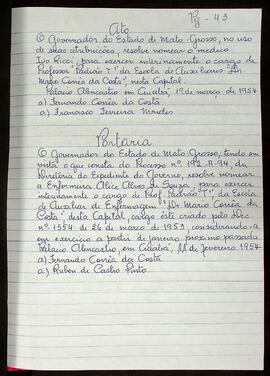 Pg - 43
Ato
O Governador do Estado de Mato-Grosso, no uso
de suas atribuições, resolve nomear o médico
Ivo Ricci, para exercer interinamente o cargo de
Professor "Padrão T" da Escola de Auxiliares "Dr.
Mario Corrêa da Costa", nesta Capital.
Palacio Alencastro em Cuiabá, 1º de março de 1954.
a) Fernando Corrêa da Costa
a) Francisco Ferreira Mendes
Portaria
O Governador do Estado de Mato-Grosso, tendo em
vista o que consta do Processo nº 192-P.94, da
Diretoria do Expediente do Governo, resolve nomear
a Enfermeira Alice Alves de Souza, para exercer
interinamente o cargo de Prof. Padrão "T", da Escola
de Auxiliar de Enfermagem "Dr. Mario Corrêa da
Costa" desta Capital, cargo este criado pelo Dec.
nº 1554 de 26 de março de 1953, considerando-a
em exercício a partir de janeiro proximo passado
Palacio Alencastro, em Cuiabá, de fevereiro 1954
a) Fernando Corrêa da Costa
a) Ruben de Castro Pinto